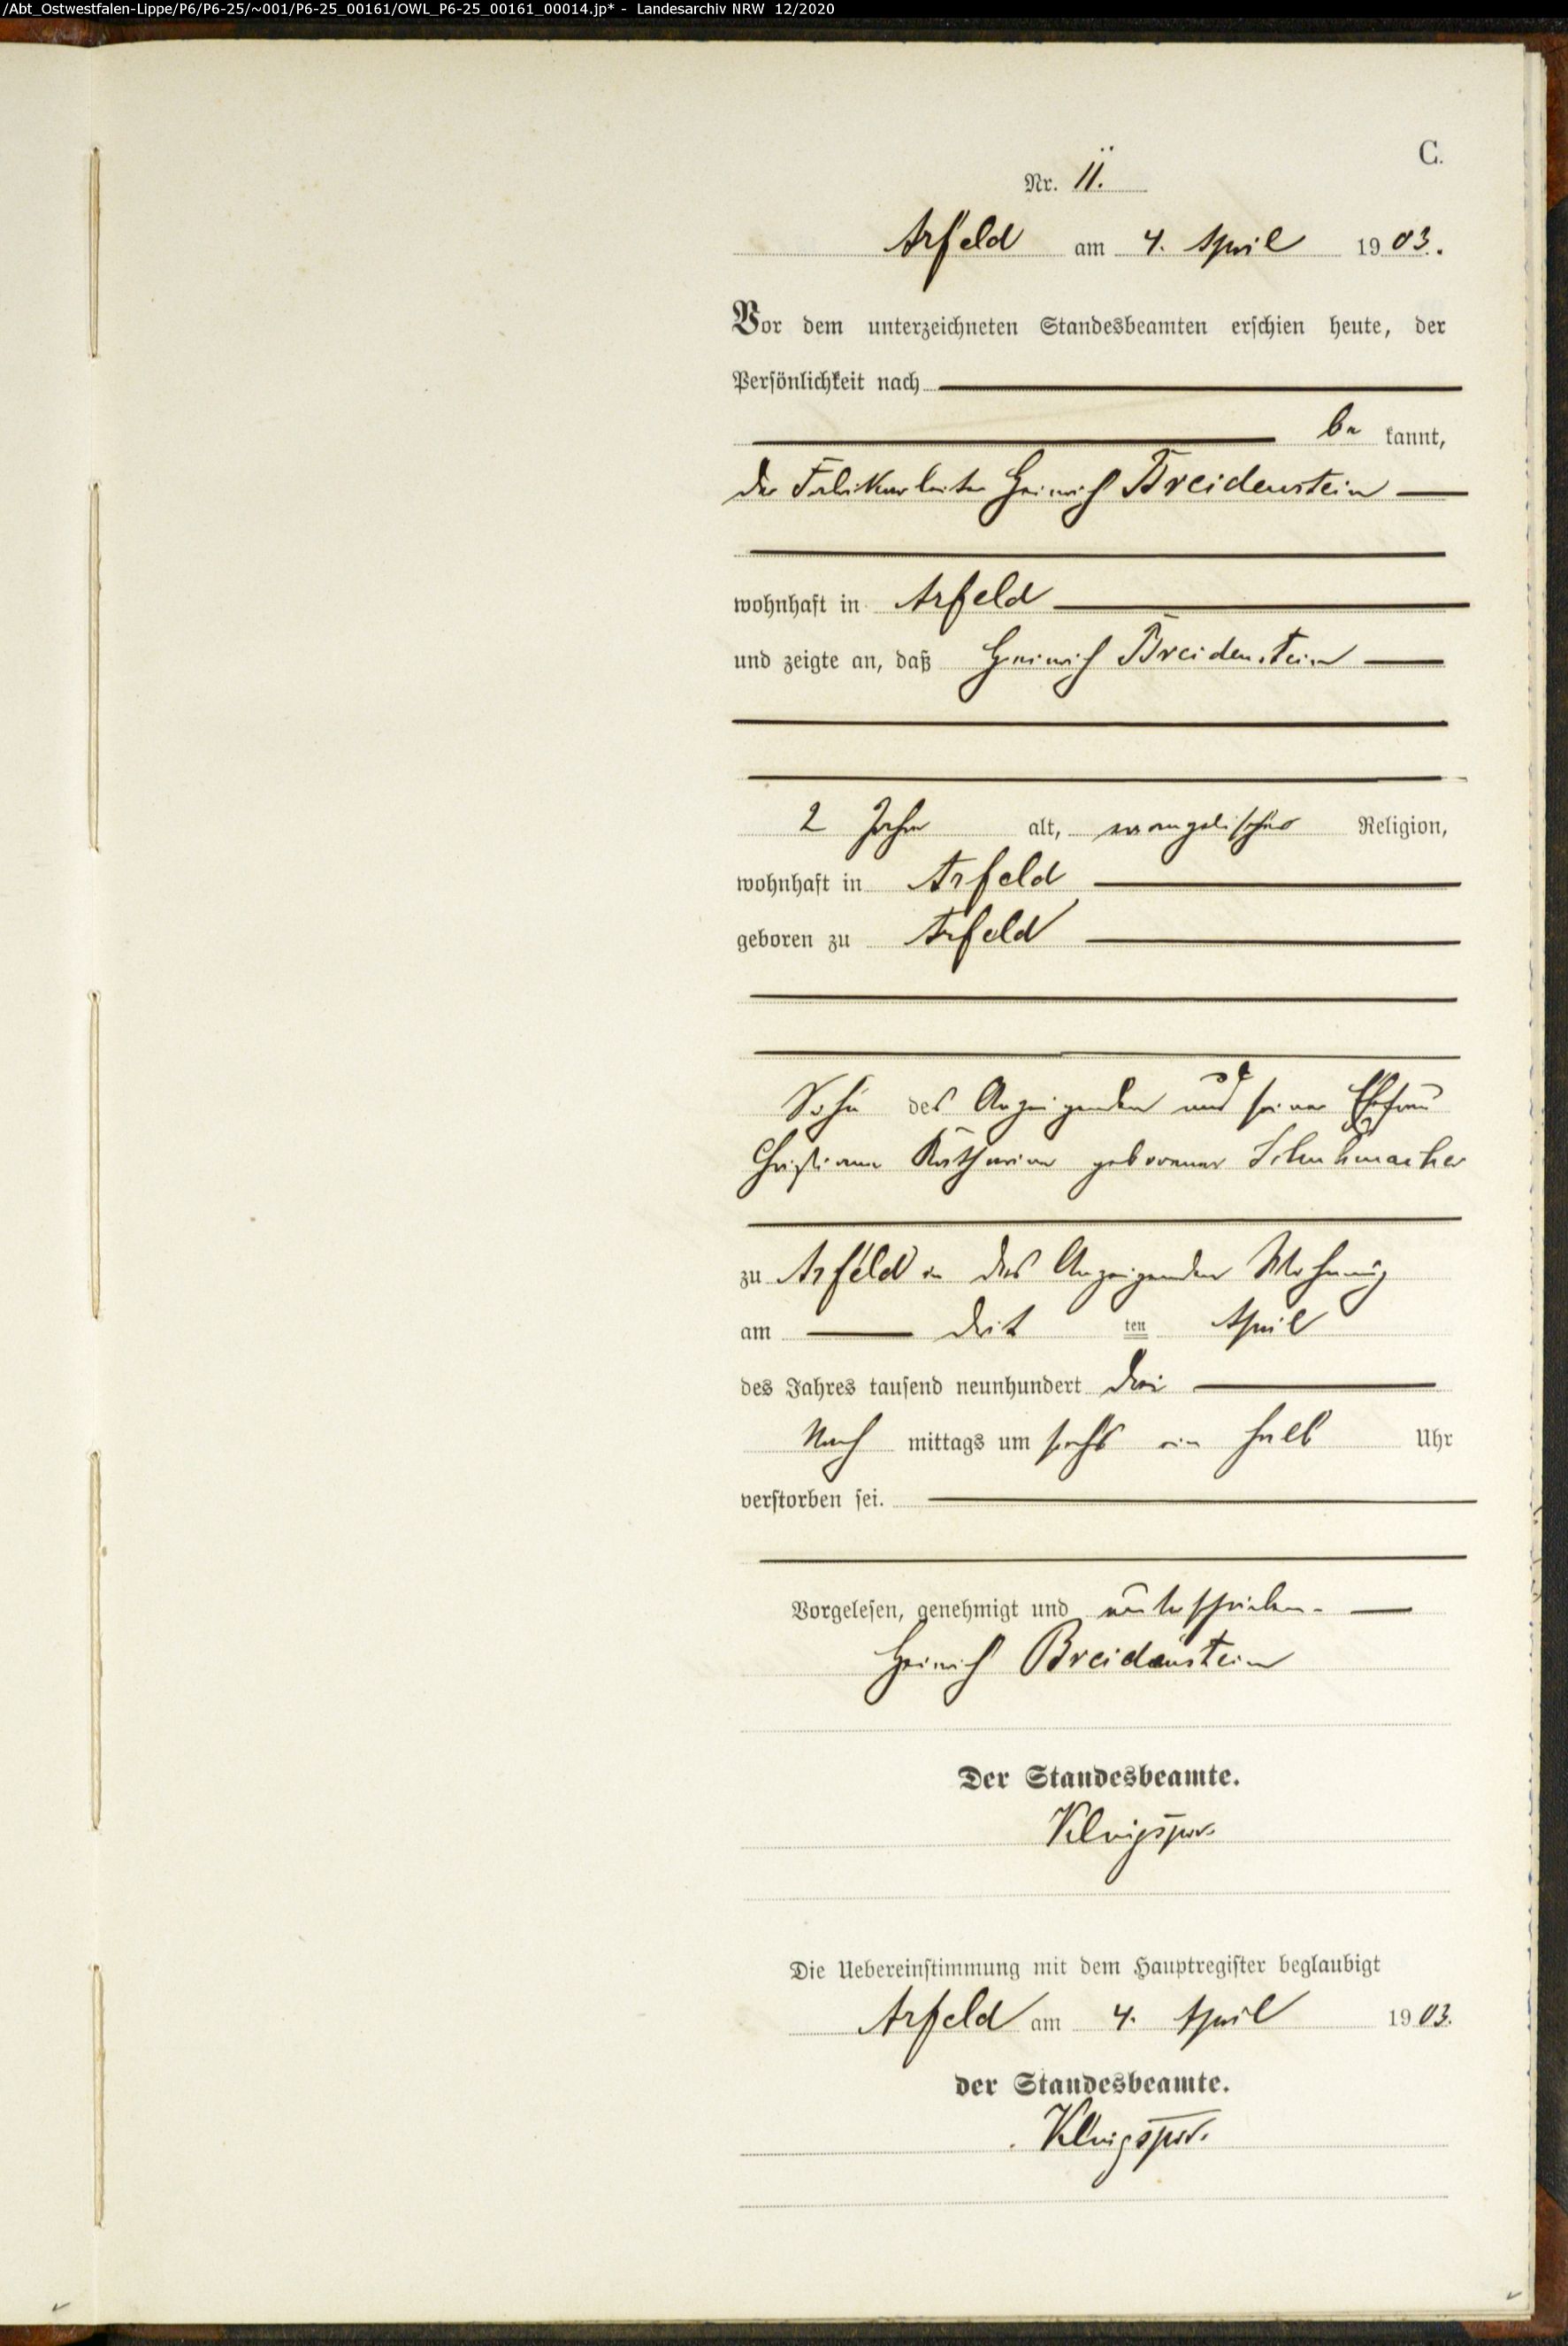 /Abt_Ostwestfalen-Lippe/P6/P6-25/~001/P6-25_00161/OWL_P6-25_00161_00014.jp* - Landesarchiv NRW 12/2020
C.
Nr. 11.
Arfeld am 4. April 1903.
Vor dem unterzeichneten Standesbeamten erschien heute, der
Persönlichkeit nach
be kannt,
der Fabrikarbeiter Heinrich Breidenstein
wohnhaft in Arfeld
und zeigte an, daß Heinrich Breidenstein
2 Jahre alt, evangelischer Religion,
wohnhaft in Arfeld
geboren zu Arfeld
Sohn des Anzeigenden und seiner Ehefrau
Christiane Katharine geborener Schuhmacher
zu Arfeld in des Anzeigenden Wohnung
am drit ten April
des Jahres tausend neunhundert drei
Nach mittags um sechs ein halb Uhr
verstorben sei.
Vorgelesen, genehmigt und unterschrieben.
Heinrich Breidenstein
Der Standesbeamte.
Die Uebereinstimmung mit dem Hauptregister beglaubigt
Arfeld am 4. April 1903.
der Standesbeamte.